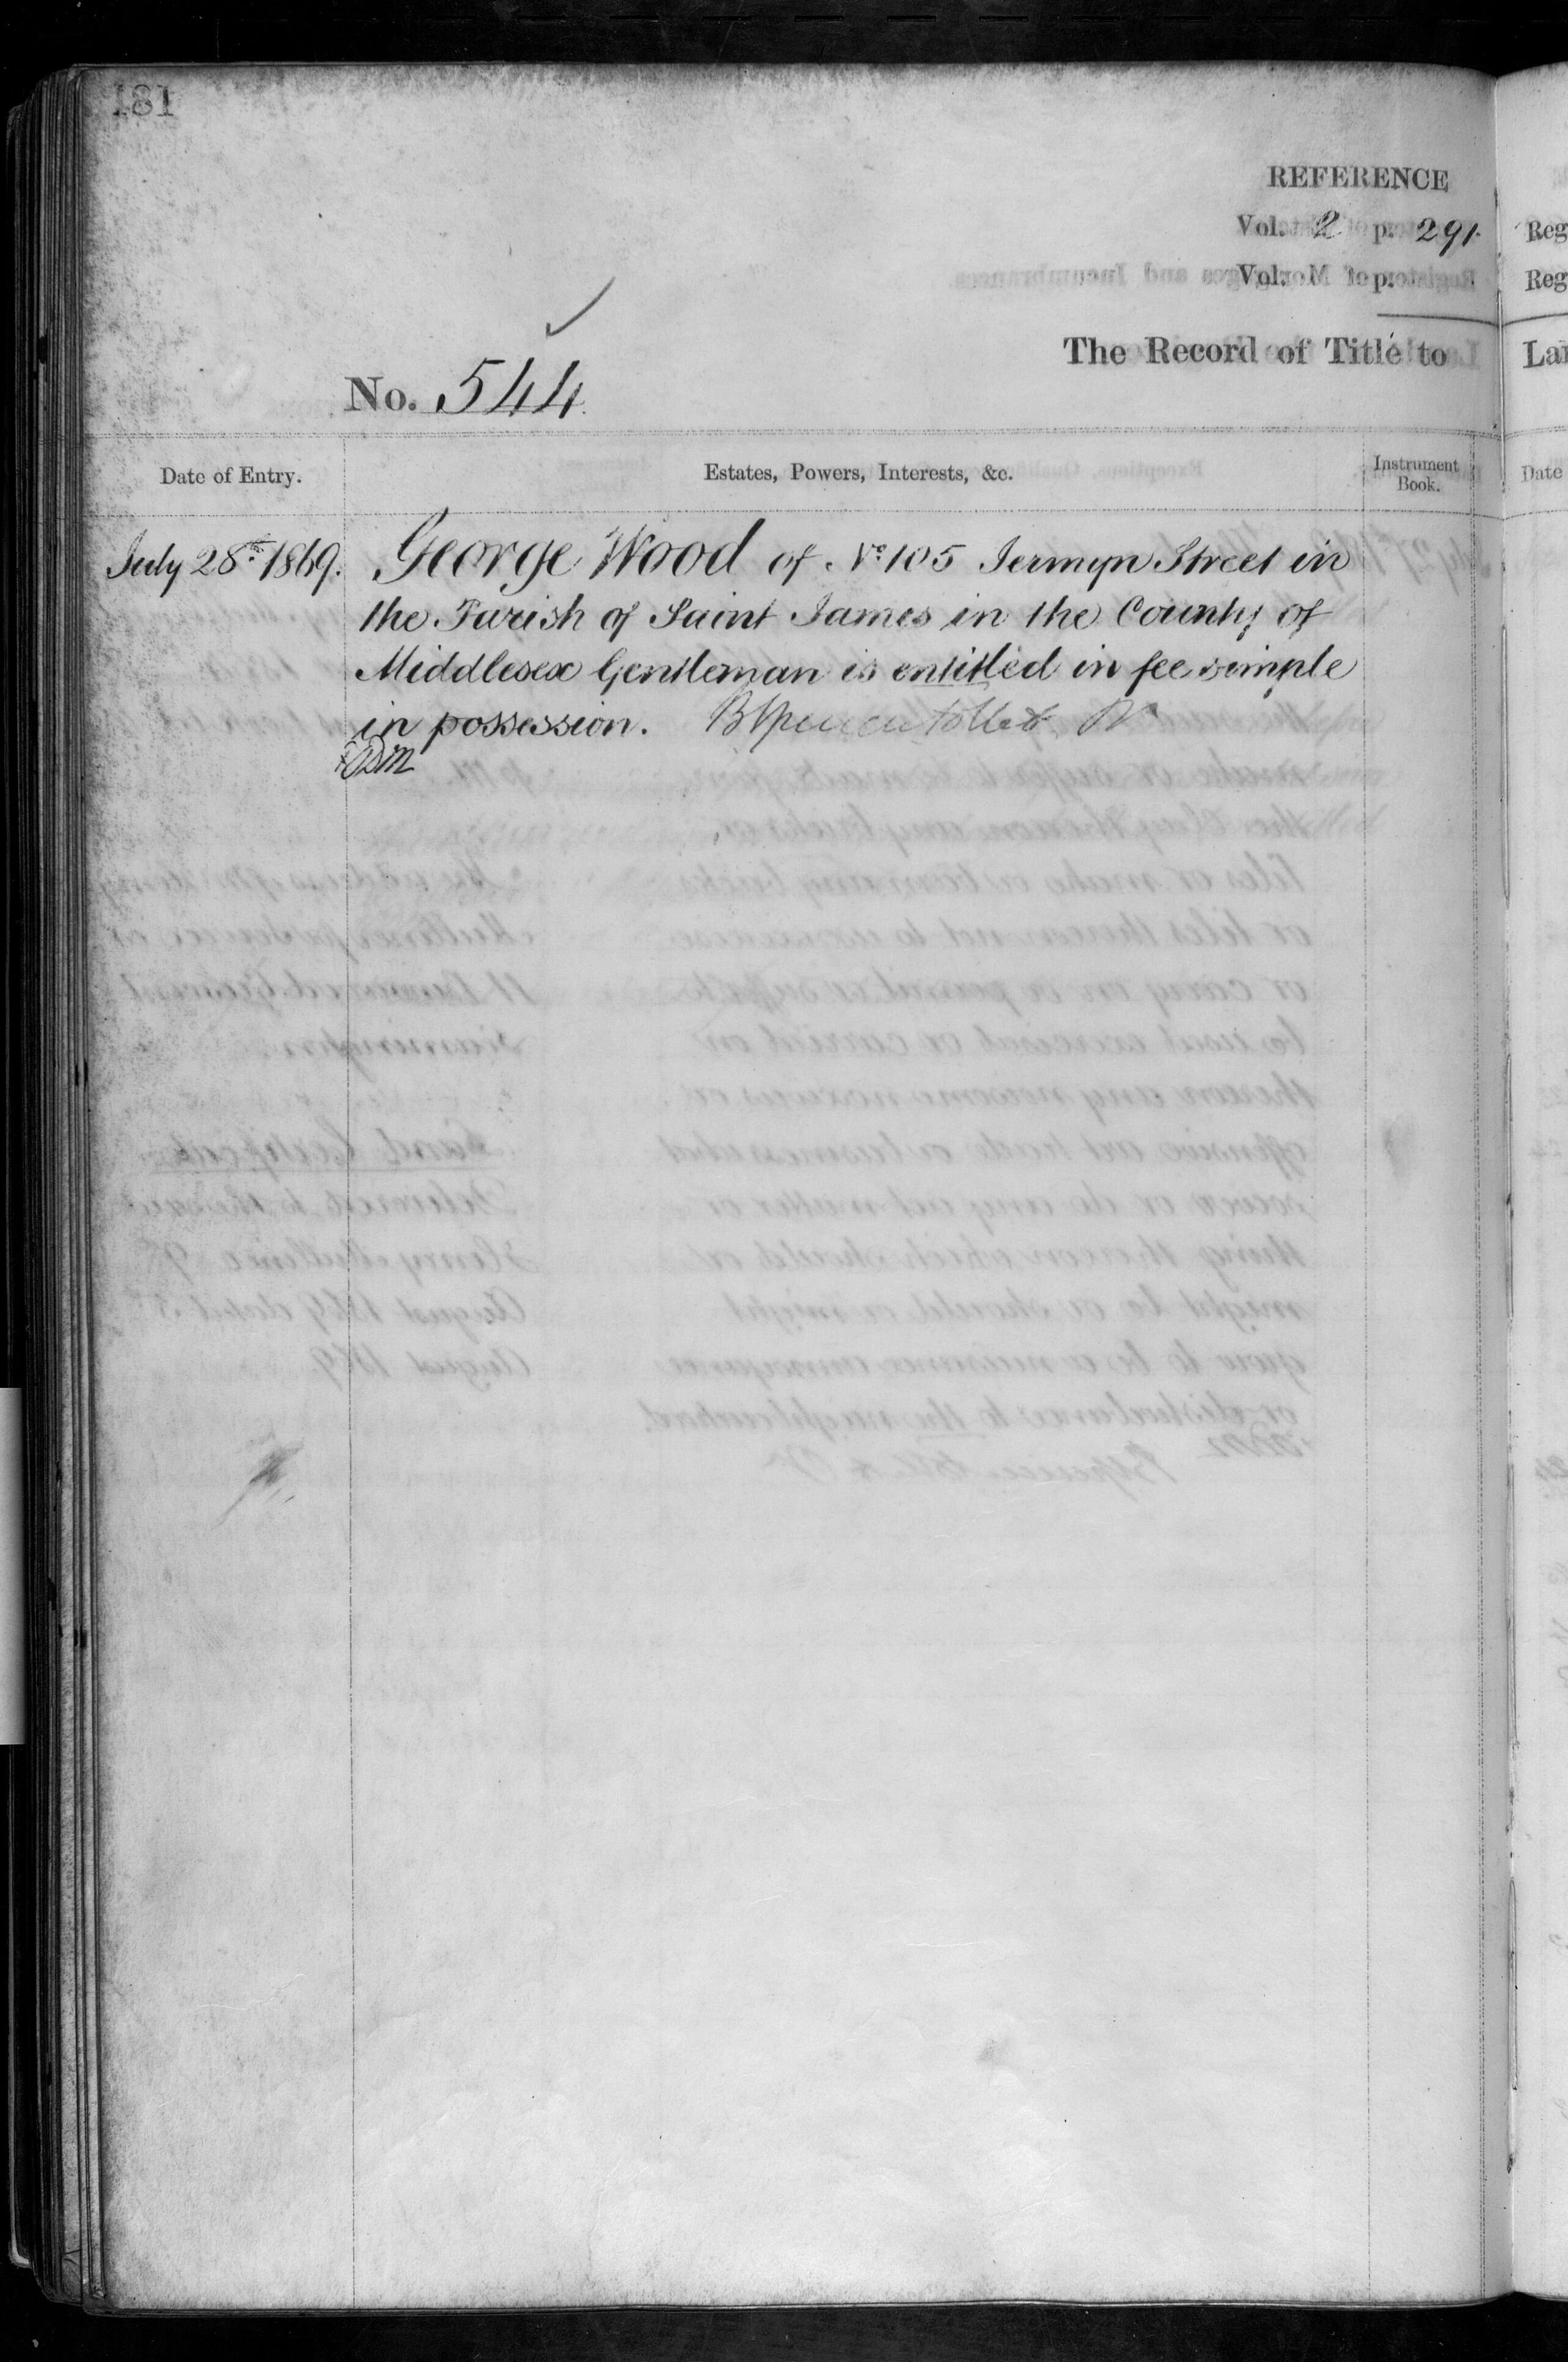 181
REFERENCE
Vol. 2 p. 291.
Vol. p.
The Record of Title to
No. 544.
Date of Entry.
Estates, Powers, Interests, &c.
Instrument Book.
July 28th 1869.
George Wood of No. 105 Jermyn Street in
the Parish of Saint James in the County of
Middlesex Gentleman is entitled in fee simple
in possession.
Reg
Reg
Lan
Date